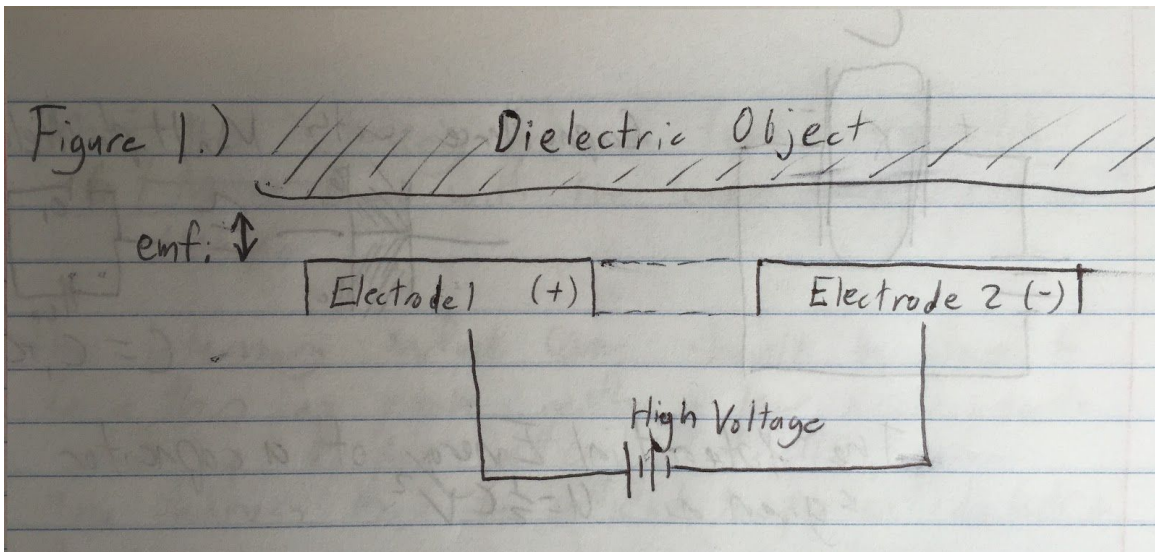 Figure 1.) Dielectric Object
emf:
Electrode 1 (+) Electrode 2 (-)
High Voltage